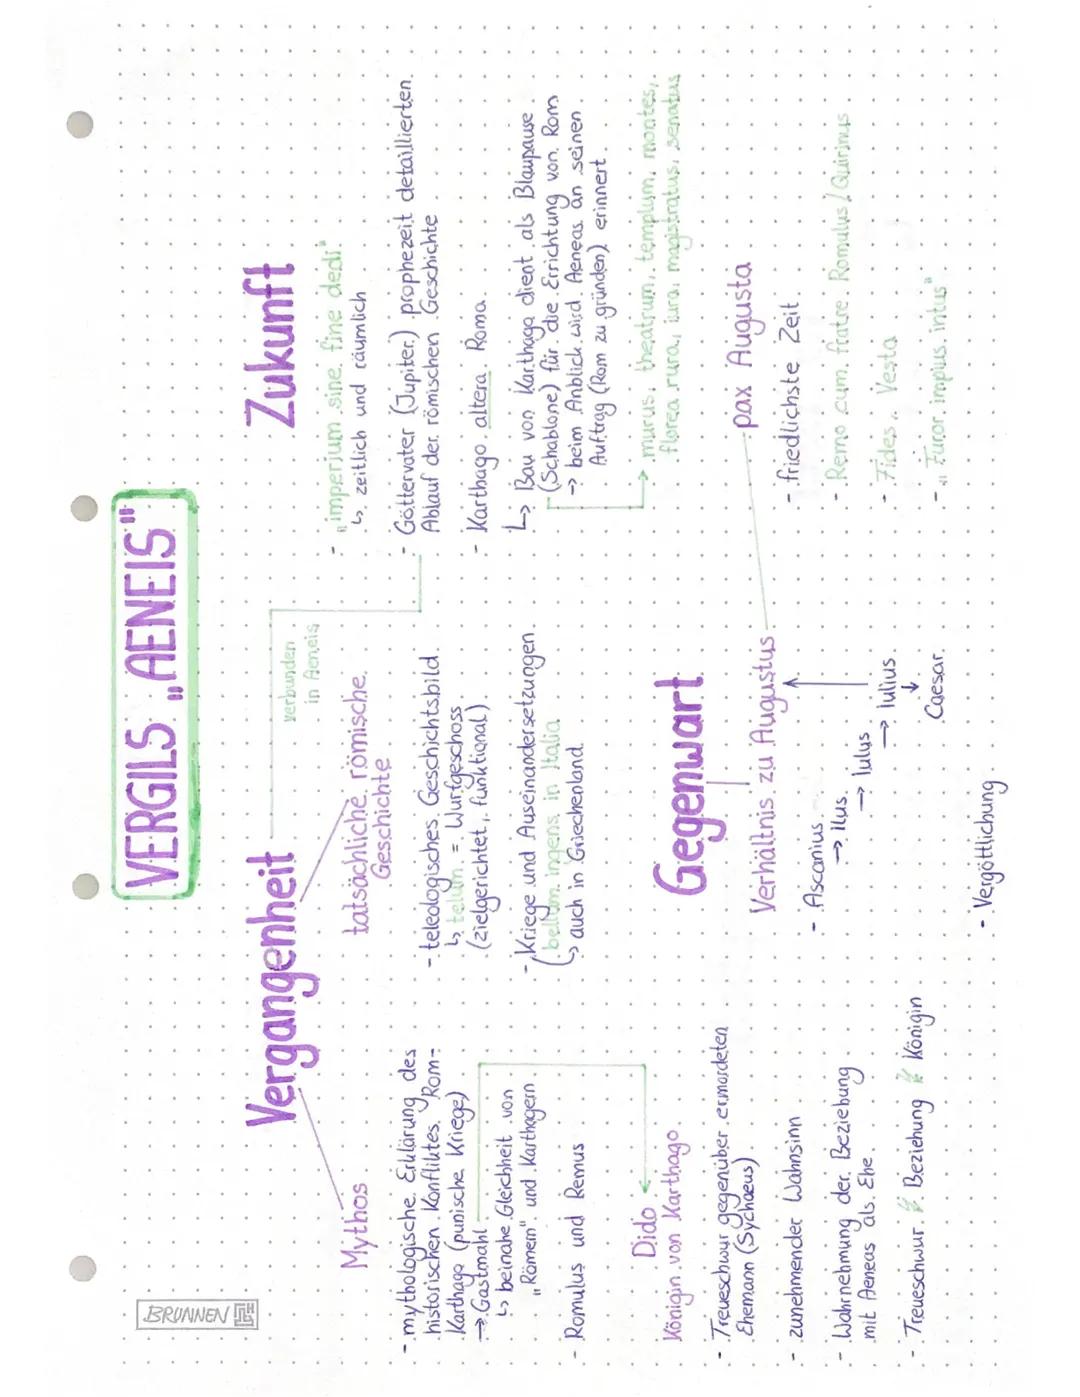 BRUNNEN
VERGILS „AENEIS"
Vergangenheit
verbunden
in Aeneis
Mythos
- mythologische Erklärung des
historischen Konfliktes Rom-
Karthago (punische Kriege)
→ Gastmahl
↳ beinahe Gleichheit von
„Römern" und Karthagern
- Romulus und Remus
Dido
Königin von Karthago
- Treueschwur gegenüber ermordeten
Ehemann (Sychaeus)
- zunehmender Wahnsinn
- Wahrnehmung der Beziehung
mit Aeneas als Ehe
- Treueschwur ↯ Beziehung ↯ Königin
tatsächliche römische
Geschichte
- teleologisches Geschichtsbild
↳ telum = Wurfgeschoss
(zielgerichtet, funktional)
- Kriege und Auseinandersetzungen
bellum ingens in Italia
↳ auch in Griechenland
Gegenwart
Verhältnis zu Augustus
- Ascanius
→ ilus
→ Iulus
→ Iulius
↓
Caesar
- Vergöttlichung
Zukunft
- „imperium sine fine dedi"
↳ zeitlich und räumlich
- Göttervater (Jupiter) prophezeit detaillierten
Ablauf der römischen Geschichte
- Karthago altera Roma
↳ Bau von Karthago dient als Blaupause
(Schablone) für die Errichtung von Rom
→ beim Anblick wird Aeneas an seinen
Auftrag (Rom zu gründen) erinnert
→ murus, theatrum, templum, montes,
florea rura, iura, magistratus, senatus
pax Augusta
- friedlichste Zeit
- Remo cum fratre Romulus/Quirinus
- Fides, Vesta
- „Furor impius intus"